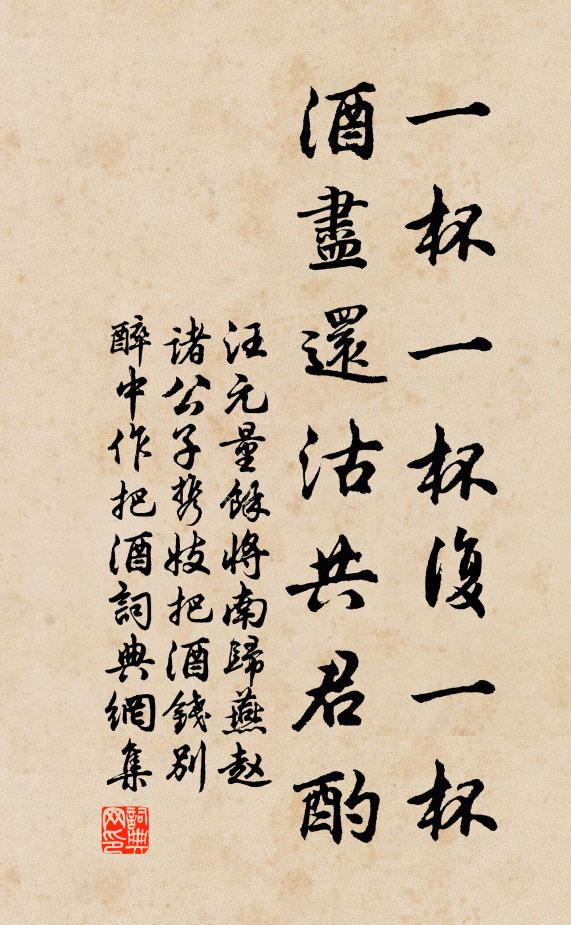 一杯一杯復一杯
酒盡還沽共君酌
汪元量餘將南歸燕赵
諸公子携妓把酒錢別
醉中作把酒詞典網集
詞典网印